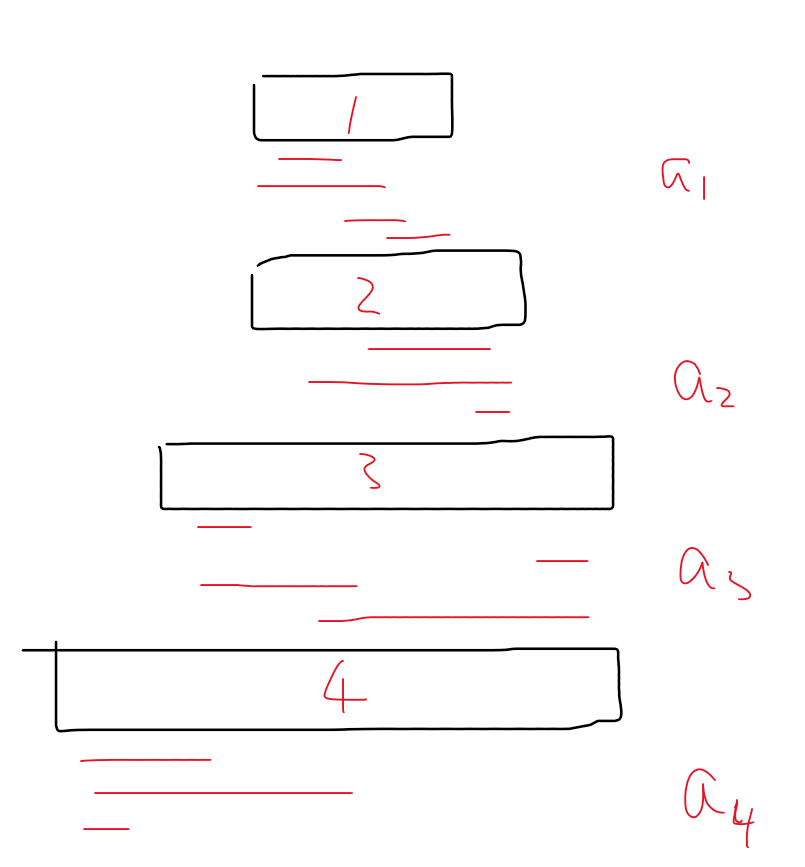 1
a₁
2
a₂
3
a₃
4
a₄